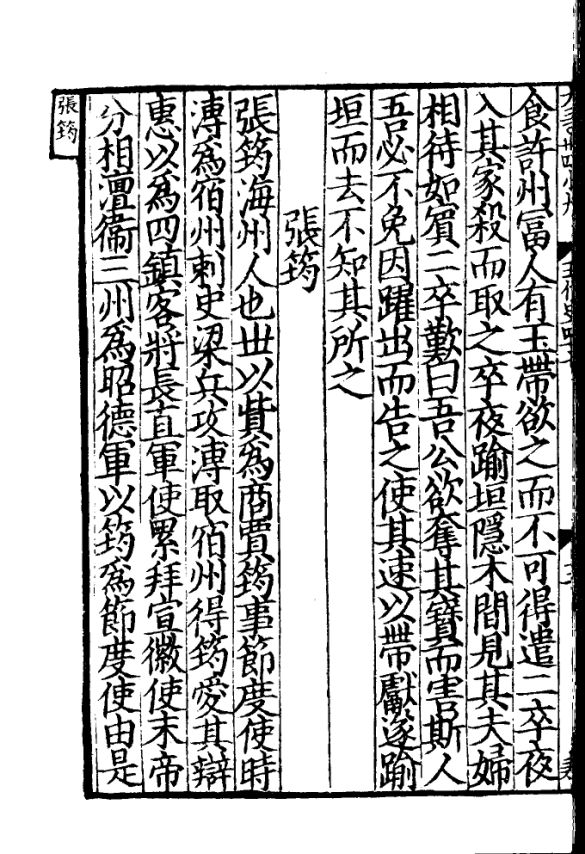 食許州冨人有玉帶欲之而不可得遣二卒夜
入其家殺而取之卒夜踰垣隱木間見其夫婦
相待如賔二卒歎曰吾公欲奪其寶而害斯人
吾必不免因躍出而告之使其速以帶獻遂踰
垣而去不知其所之
張筠
張筠海州人也丗以貲爲商賈筠事節度使時
溥爲宿州刺史梁兵攻溥取宿州得筠愛其辯
惠以爲四鎮客將長直軍使累拜宣徽使末帝
分相澶衞三州爲昭德軍以筠爲節度使由是
張筠